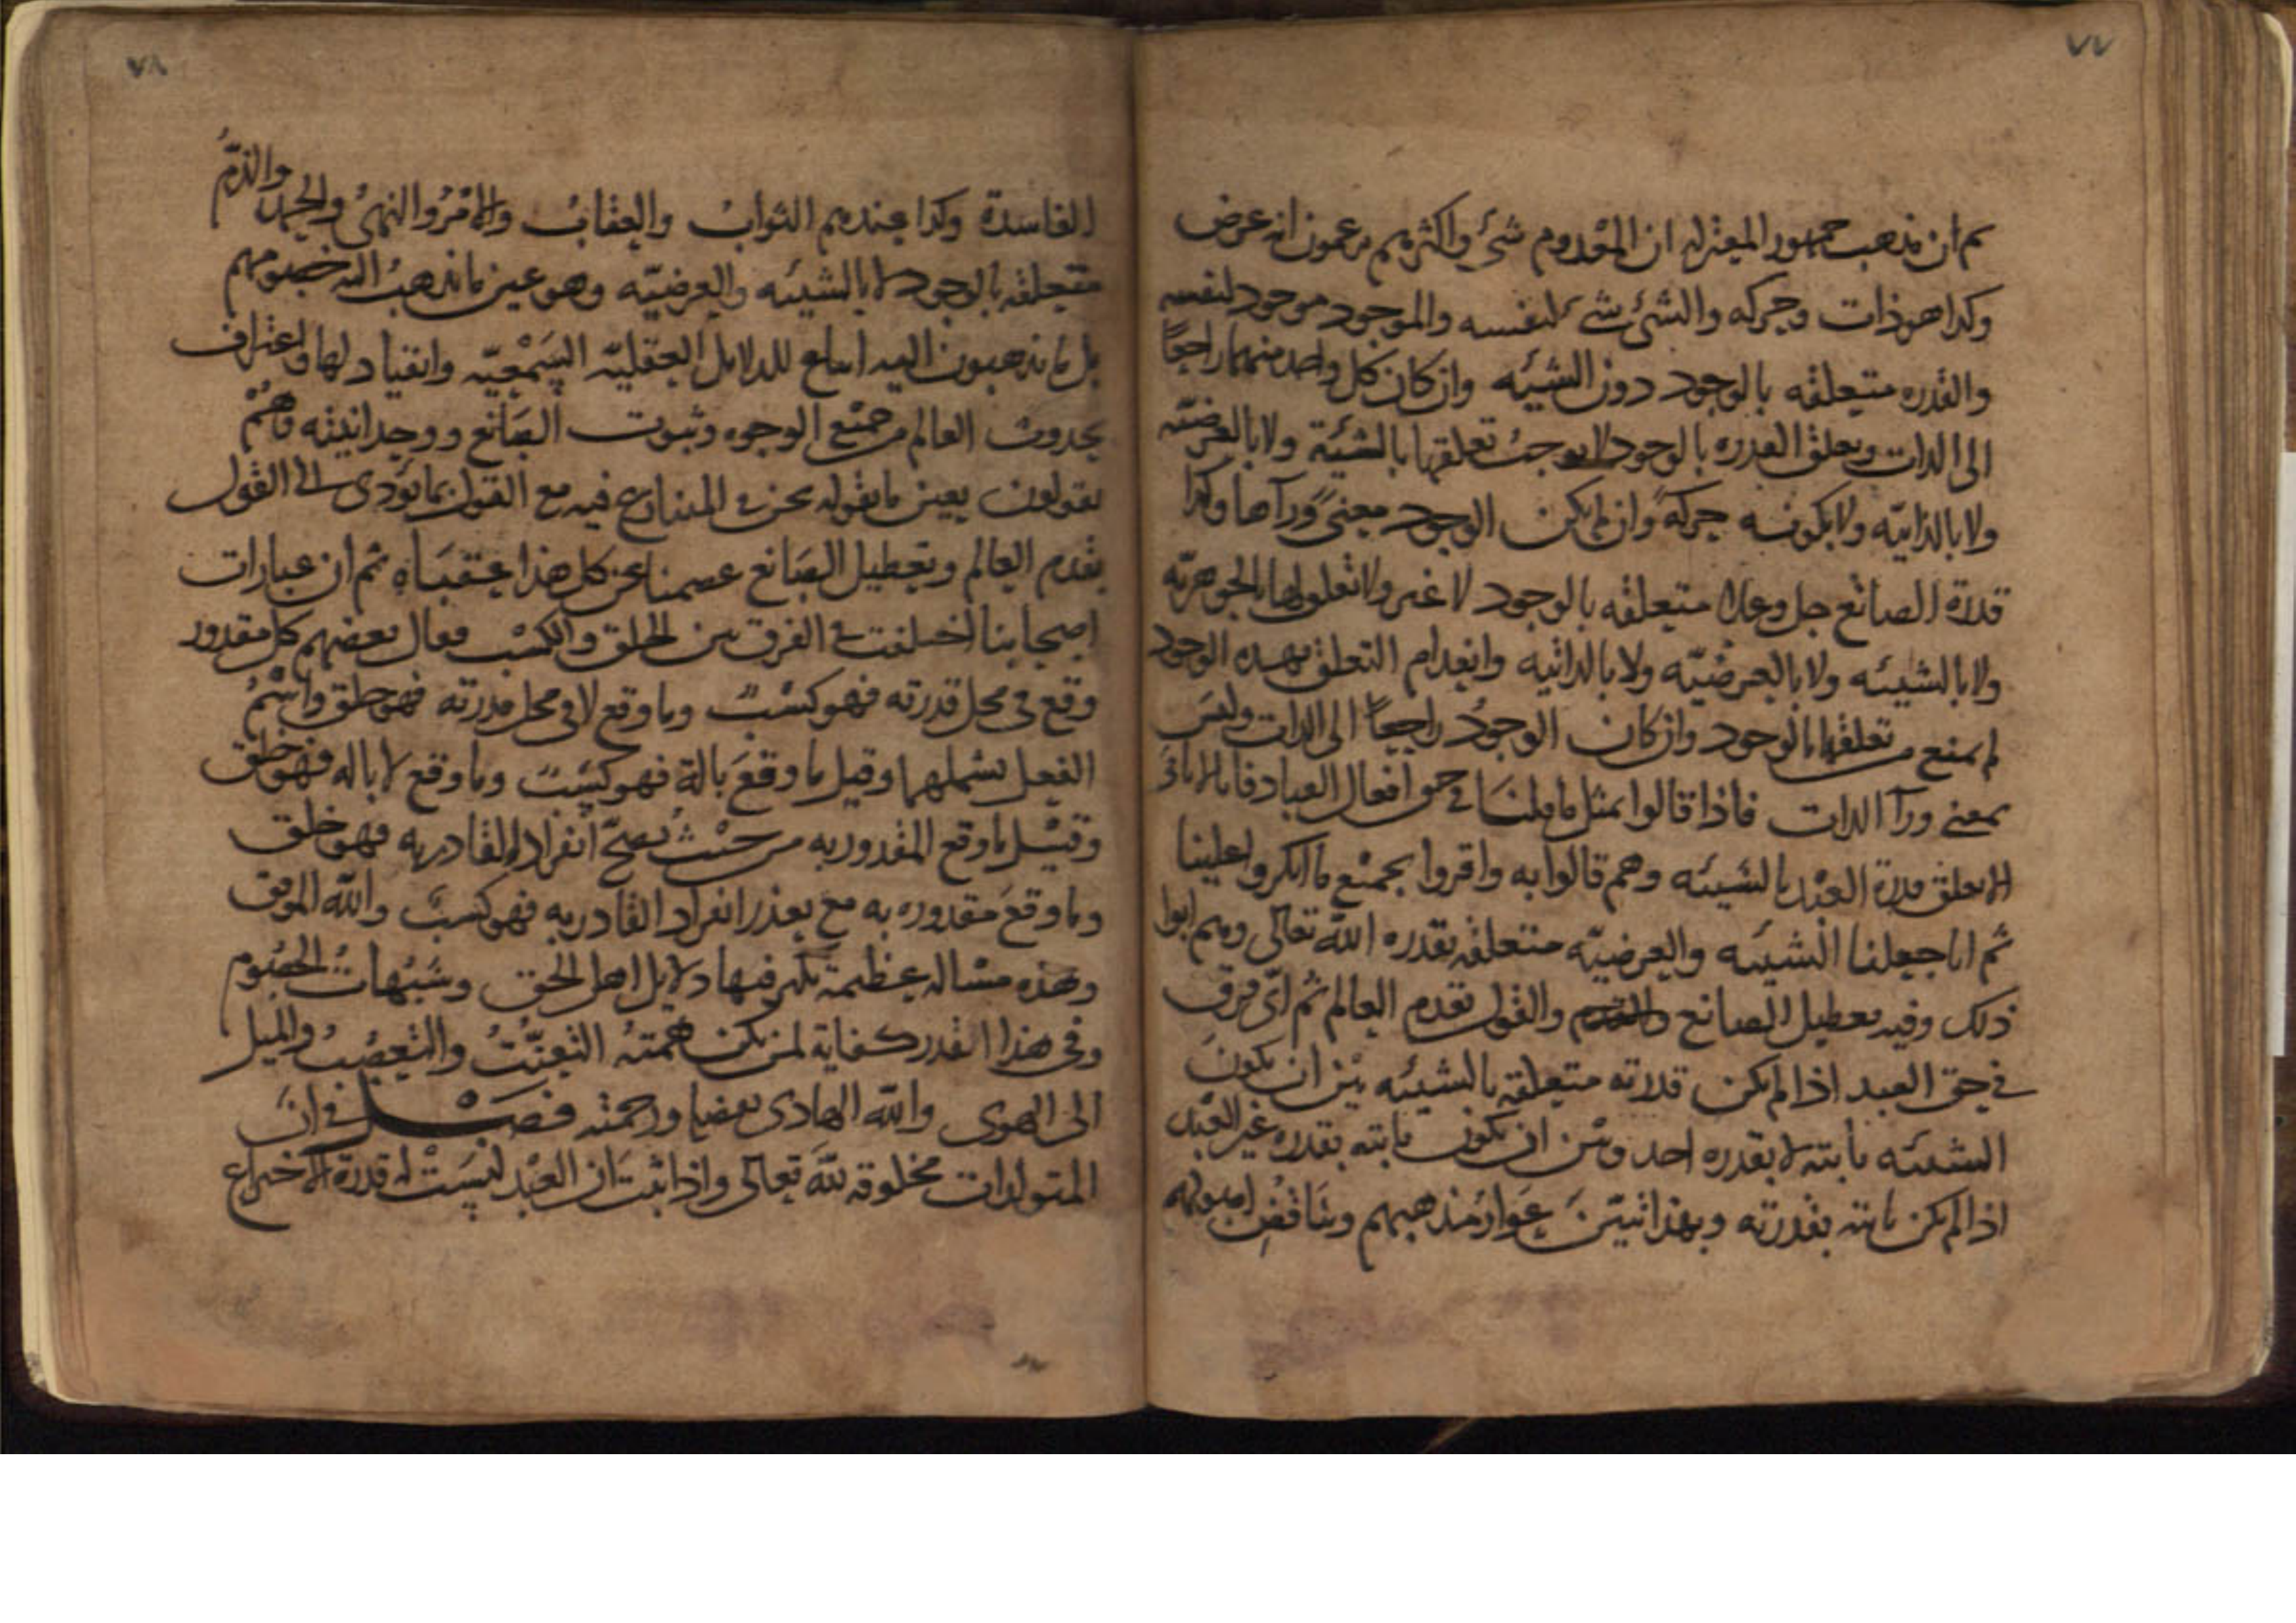 ٧٧
ثم ان مذهب جمهور المعتزله ان المعدوم شئ واكثرهم يزعمون انه عرض
وكذا هو ذات وحركه والشئ شئ لنفسه والموجود موجود لنفسه
والقدره متعلقه بالوجود دون الشيئه وان كان كل واحد منهما راجعًا
الى الذات وتعلق القدره بالوجود لا يوجب تعلقها بالشيئة ولا بالعرضيّه
ولا بالذاتيّه ولا بكونه حركةً وان لم يكن الوجود معنىً ورآءها وكذا
قدرة الصانع جل وعلا متعلقه بالوجود لا غير ولا تعلق لها بالجوهريّه
ولا بالشيئه ولا بالعرضيّه ولا بالذاتيه وانعدام التعلق بهذه الوجوه
لم يمنع من تعلقها بالوجود وان كان الوجودُ راجعاً الى الذات وليسَ
بمعنى ورآ الذات فاذا قالوا بمثل ما قلنا في حق افعال العباد فانا لا
لا تعلق قدرة العبْد بالشيئه وهم قالوا به واقروا بجميْع ما انكروا علينا
ثم انا جعلنا الشيئه والعرضيّه متعلقه بقدره الله تعالى وهم ابوا
ذلك وفيه تعطيل الصانع والقول بقدم العالم ثم اىّ فرق
في حق العبد اذا لم يكن قدرته متعلقه بالشيئه بيْن ان يكونَ
الشيئه ثابته لا بقدره احد وبين ان يكون ثابته بقدره غير العبْد
اذا لم يكن ثابته بقدرته وبهذا تبيّنَ عَوار مذهبهم وتناقض اصولهم
٧٨
الفاسدة وكذا عندهم الثوابُ والعقابُ والامْرُ والنهىُ والحمدُ والذمُّ
متعلقه بالوجود لا بالشيئه والعرضيّه وهو عين ما يذهبُ اليه خصومهم
بل ما يذهبون اليه اتباع للدلايل العقليّه السّمْعيّه وانقياد لها واعتراف
بحدوث العالم من جميْع الوجوه وثبوت الصَانع ووحدانيته وهُمْ
يقولون بعين ما نقوله نحن في المتنازع فيه مع القول بما يؤدى الى القول
بقدم العالم وتعطيل الصَانع عصمنا عن كل هذا عقباه ثم ان عبارات
اصحابنا اختلفت في الفرق بين الخلق والكسْب فقال بعضهم كل مقدور
وقع في محل قدرته فهو كسْبٌ وما وقع لا في محل قدرته فهو خلق واسْمُ
الفعل يشملهما وقيل ما وقعَ بالة فهو كسْبٌ وما وقع لا بالة فهو خلق
وقيْل ما وقع المقدور به من حيْثُ يصحّ انفراد القادر به فهو خلق
وما وقعَ مقدوره به مع تعذر انفراد القادر به فهو كسْبٌ والله الموفق
وهذه مسْاله عظيمة تكثر فيها دلايل اهل الحق وشبهات الخصُوم
وفي هذا القدر كفاية لمن يكن همتهُ التعنّتُ والتعصّبُ والميل
الى الهوى والله الهادى بفضله ورحمته فصْل في انَ
المتولدات مخلوقه للهَ تعالى واذا ثبتَ ان العبْد ليسَتْ له قدرة الاختراع